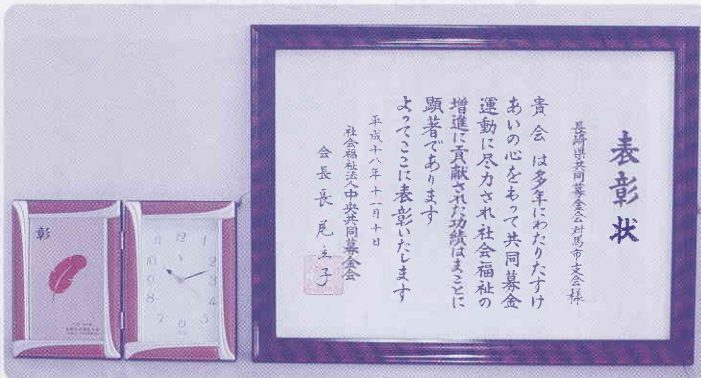 表彰状
長崎県共同募金会対馬市支会様
貴会は多年にわたりたすけ
あいの心をもって共同募金
運動に尽力され社会福祉の
増進に貢献された功績はまことに
顕著であります
よってここに表彰いたします
平成十八年十一月十日
社会福祉法人中央共同募金会
会長長尾立子
彰
12
1
2
3
4
5
6
7
8
9
10
11